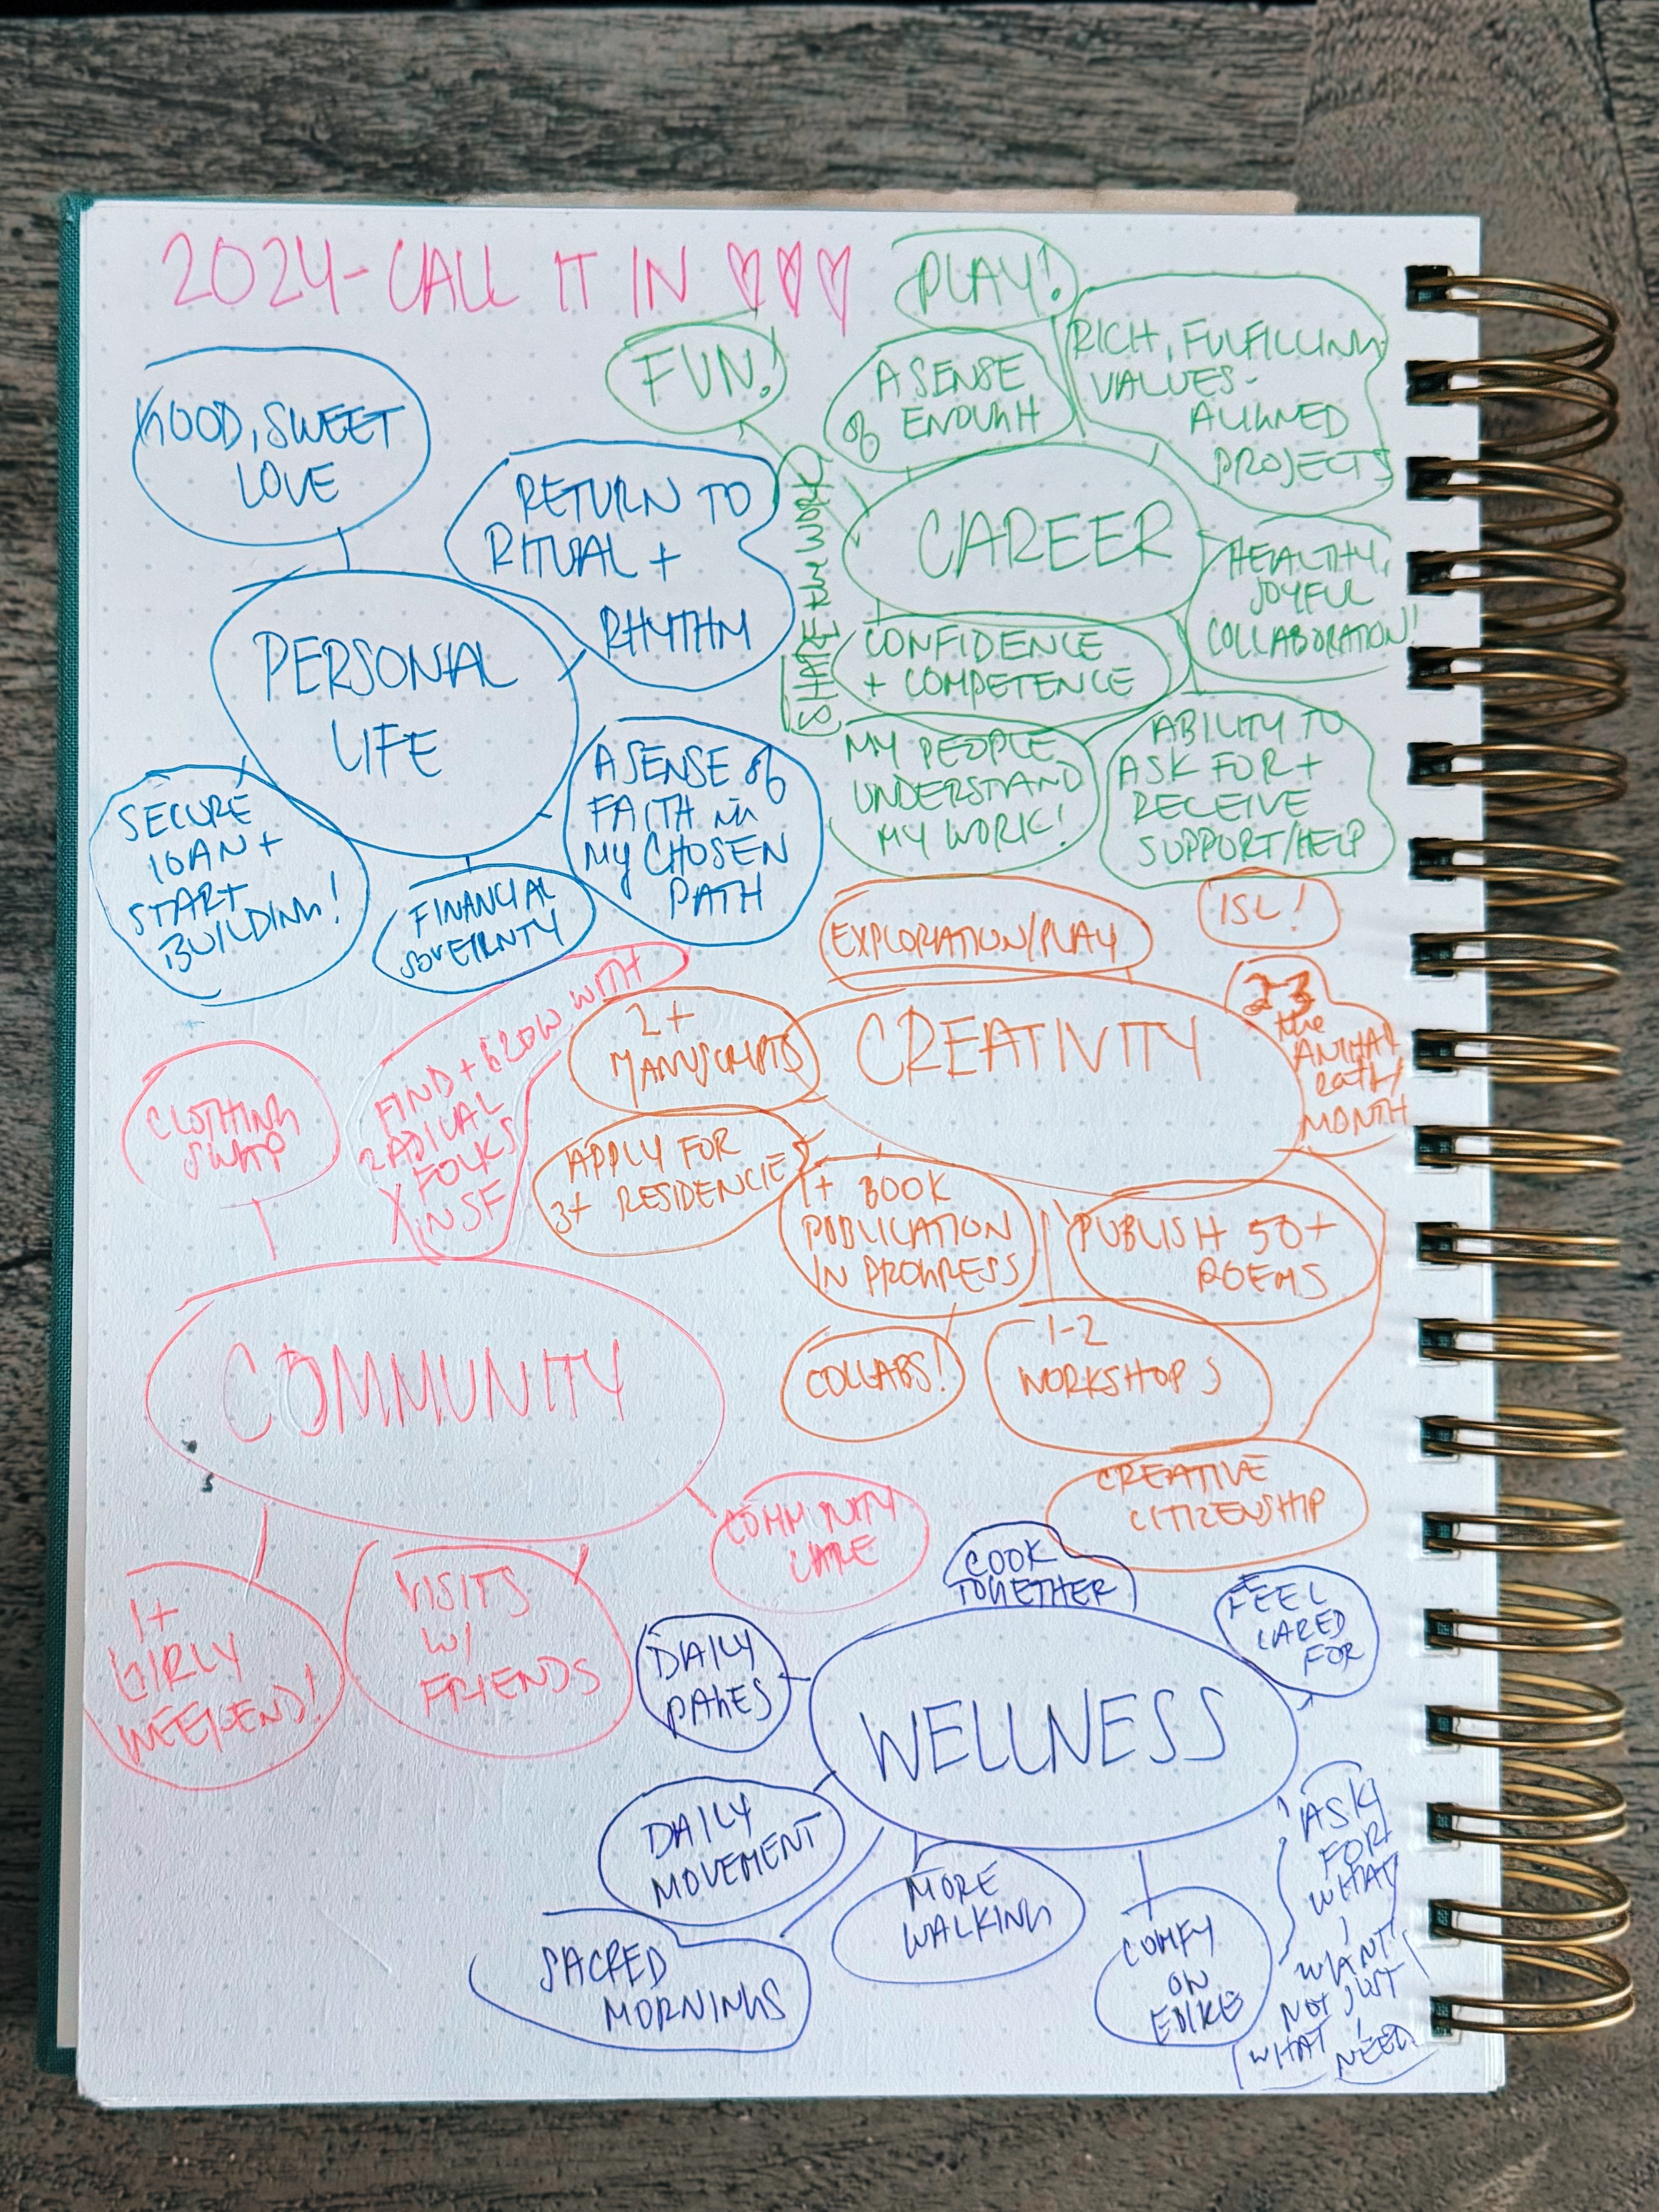 2024 - CALL IT IN
GOOD, SWEET
LOVE
RETURN TO
RITUAL +
RHYTHM
PERSONAL
LIFE
SECURE
LOAN +
START
BUILDING!
FINANCIAL
A SENSE of
FAITH in
MY CHOSEN
PATH
PLAY!
FUN!
A SENSE
of ENOUGH
RICH, FULFILLING
VALUES-
ALIGNED
PROJECTS
CAREER
SHARE the WORK
HEALTHY,
JOYFUL
COLLABORATION!
CONFIDENCE
+ COMPETENCE
MY PEOPLE
UNDERSTAND
MY WORK!
ABILITY TO
ASK FOR +
RECEIVE
SUPPORT/HELP
EXPLORATION/PLAY
ISL!
2-3
the
ANIMAL
EATS/
MONTH
CREATIVITY
2+
MANUSCRIPTS
APPLY FOR
3+ RESIDENCIE
1+ BOOK
PUBLICATION
IN PROGRESS
PUBLISH 50+
POEMS
COLLABS!
1-2
WORKSHOPS
CREATIVE
CITIZENSHIP
CLOTHING
SWAP
FIND + GROW WITH
RADICAL
FOLKS
IN SF
COMMUNITY
COMMUNITY
CARE
1+
GIRLY
WEEKEND!
VISITS
W/
FRIENDS
COOK
TOGETHER
FEEL
CARED
FOR
DAILY
PAGES
WELLNESS
DAILY
MOVEMENT
SACRED
MORNINGS
MORE
WALKING
COMFY
ON
EBIKE
ASK
FOR
WHAT
I
WANT
NOT JUST
WHAT I
NEED